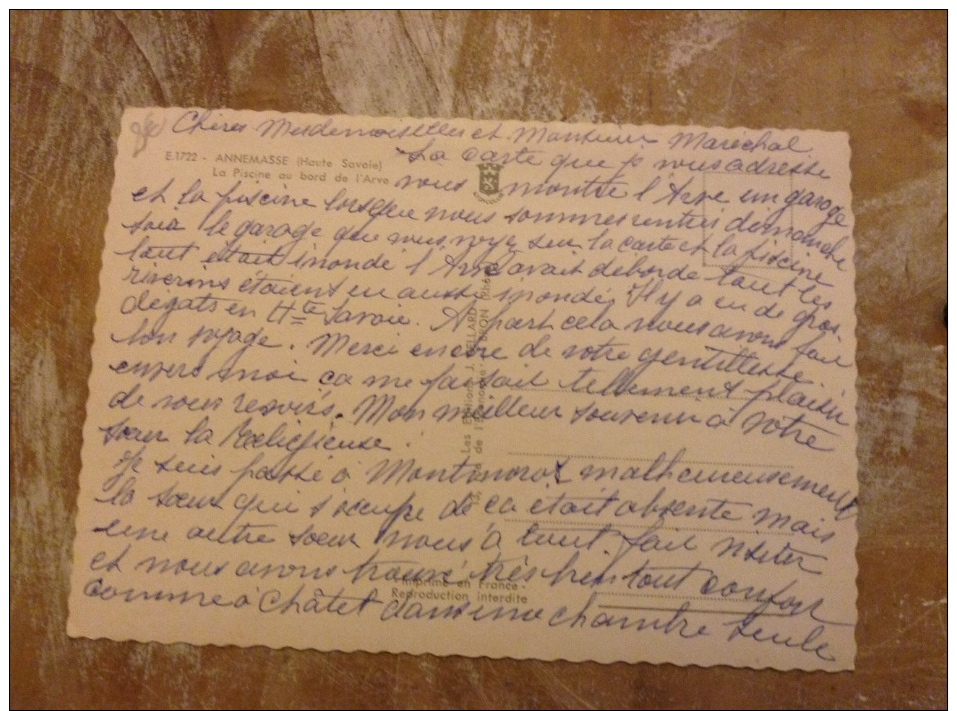 Chères Mesdemoiselles et Monsieur Maréchal
E.1722 - ANNEMASSE (Haute Savoie)
La Piscine au bord de l'Arve
La carte que je vous adresse
vous montre l'Arve un garage
et la piscine lorsque nous sommes rentrés dimanche
soir le garage que vous voyez sur la carte et la piscine
tout était inondé l'Arve avait débordé tout les
riverins étaient eu aussi inondé, Il y a eu de gros
degats en Hte Savoie. A part cela nous avons fait
bon voyage. Merci encore de votre gentillesse.
envers moi ça me faisait tellement plaisir
de vous revoirs. Mon meilleur souvenir à votre
sœur la Religieuse.
Je suis passé à malheureusement
la sœur qui s'occupe de ca etait absente mais
une autre sœur nous à tout fait visiter
et nous avons trouvé très bien tout confort
comme à Châtel dans une chambre seule
Les Editions J. CELLARD
BRON (Rhône)
Imprimé en France -
Reproduction interdite